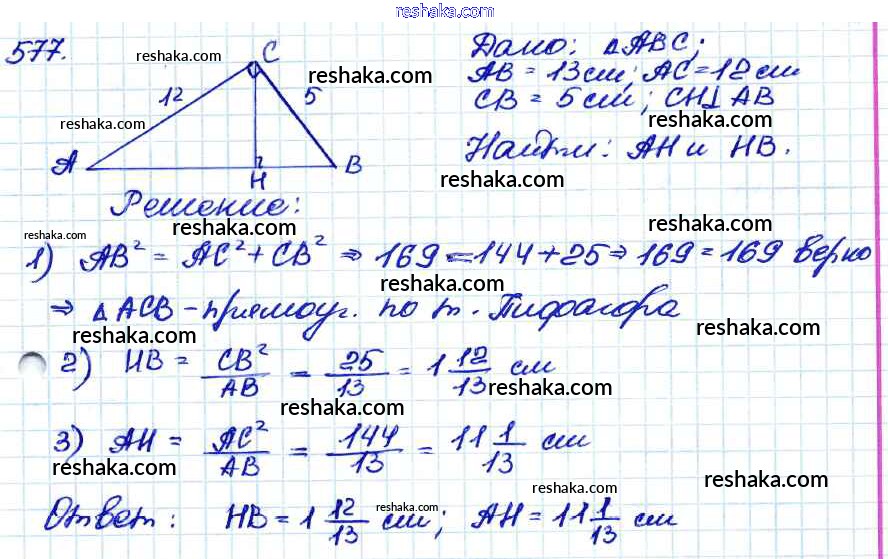 reshaka.com
577.
reshaka.com
C
12
5
reshaka.com
reshaka.com
A
H
B
Дано: △ABC;
AB = 13 см; AC = 12 см
reshaka.com
CB = 5 см; CH⊥AB
reshaka.com
Найти: AH и HB.
reshaka.com
Решение:
reshaka.com
reshaka.com
reshaka.com
1) AB² = AC² + CB² ⇒ 169 = 144 + 25 ⇒ 169 = 169 верно
reshaka.com
⇒ △ACB – прямоуг. по т. Пифагора
reshaka.com
reshaka.com
2) HB = CB²/AB = 25/13 = 1 12/13 см
reshaka.com
reshaka.com
3) AH = AC²/AB = 144/13 = 11 1/13 см
reshaka.com
reshaka.com
reshaka.com
reshaka.com
Ответ: HB = 1 12/13 см; AH = 11 1/13 см
reshaka.com